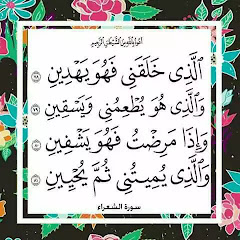 أعوذ بالله من الشيطان الرجيم
ٱلَّذِى خَلَقَنِى فَهُوَ يَهْدِينِ ٧٨
وَٱلَّذِى هُوَ يُطْعِمُنِى وَيَسْقِينِ ٧٩
وَإِذَا مَرِضْتُ فَهُوَ يَشْفِينِ ٨٠
وَٱلَّذِى يُمِيتُنِى ثُمَّ يُحْيِينِ ٨١
سورة الشعراء